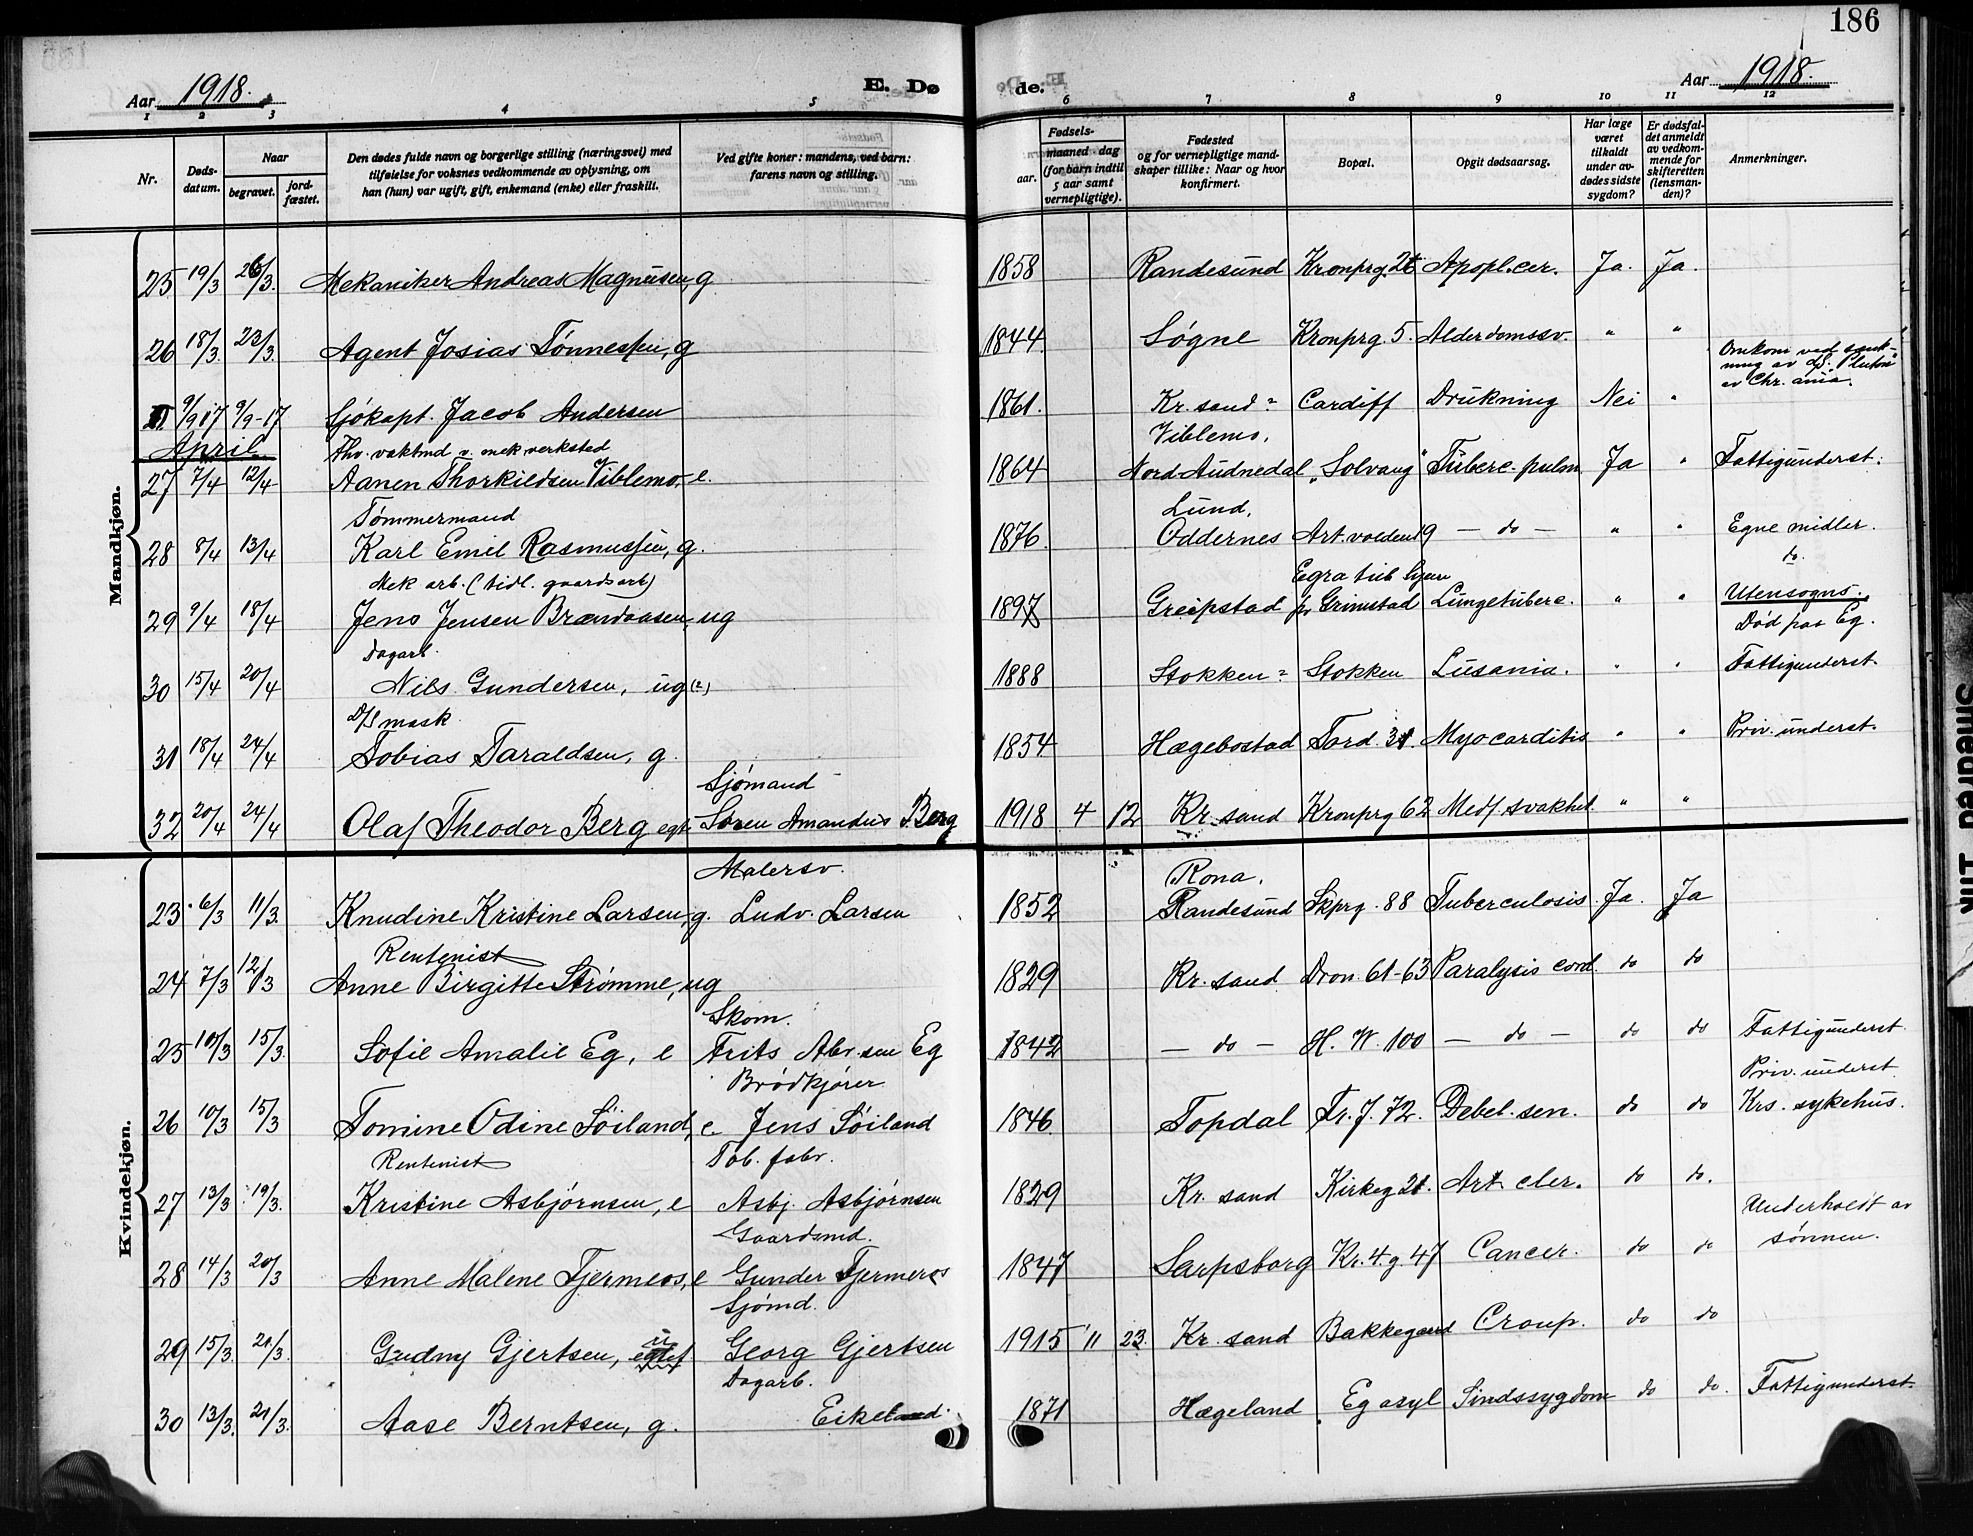 186
Aar 1918.
E. Dø
de.
Aar 1918.
1 2 3 4 5 6 7 8 9 10 11 12
Nr.
Døds-
datum.
Naar
begravet.
jord-
fæstet.
Den dødes fulde navn og borgerlige stilling (næringsvei) med
tilføielse for voksnes vedkommende av oplysning, om
han (hun) var ugift, gift, enkemand (enke) eller fraskilt.
Ved gifte koner: mandens, ved barn:
farens navn og stilling.
Fødsels-
aar.
maaned dag
(for barn indtil
5 aar samt
vernepligtige).
Fødested
og for vernepligtige mand-
skaper tillike: Naar og hvor
konfirmert.
Bopæl.
Opgit dødsaarsag.
Har læge
været
tilkaldt
under av-
dødes sidste
sygdom?
Er dødsfal-
det anmeldt
av vedkom-
mende for
skifteretten
(lensman-
den)?
Anmerkninger.
Mandkjøn.
25 19/3 26/3. Mekaniker Andreas Magnusen, g 1858 Randesund Kronprg. 26 Apopl. cer. Ja. Ja.
26 18/3 23/3. Agent Josias Tønnessen, g 1844. Søgne Kronprg 5. Alderdomssv. " "
Omkom ved sænk-
ning av d/s. "Pluton"
av Chr. ania.
9/9 17 9/9-17 Sjøkapt. Jacob Andersen 1861. Kr. sand Cardiff Drukning Nei "
April.
Fhv. vaktmd v. mek verksted Viblemo,
27 7/4 12/4 Aanen Thorkildsen Viblemo, e. 1864 Nord Audnedal "Solvang" Tuberc. pulm Ja " Fattigunderst.
Tømmermand Lund,
28 8/4 13/4 Karl Emil Rasmussen, g. 1876. Oddernes Art. volden 19 — do — " " Egne midler.
do.
Mek arb. (tidl. gaardsarb) Egra tub hjem
29 9/4 18/4 Jens Jensen Brandaasen, ug 1897 Greipstad pr Grimstad Lungetuberc. " " Utensogns.
Død paa Eg.
Dagarb.
30 15/4 20/4 Nils Gundersen, ug (?) 1888 Stokken Stokken Lusania. " " Fattigunderst.
D/S mask.
31 18/4 24/4 Tobias Taraldsen, g. 1854 Hægebostad Tord. 31. Myocarditis " " Priv. underst.
Sjømand
32 20/4 24/4 Olaf Theodor Berg egt. Søren Amandus Berg 1918 4 12 Kr. sand Kronprg 62 Medf. svakhet " "
Kvindekjøn.
Malersv. Rona,
23 6/3 11/3. Knudine Kristine Larsen, g. Ludv. Larsen 1852 Randesund Skprg. 88 Tuberculosis Ja. Ja
Rentenist
24 7/3 12/3 Anne Birgitte Strømme, ug 1829 Kr. sand Dron. 61-63 Paralysis cord. do do
Skom.
25 10/3 15/3. Sofie Amalie Eg, e Frits Abr.sen Eg 1842 — do — H. W. 100 — do — do do Fattigunderst.
Brødkjører Priv. underst
26 10/3 15/3 Tomine Odine Søiland, e. Jens Søiland 1846 Topdal Fr. J. 72. Debel. sen. do do Krs. sykehus.
Rentenist Tob. fabr.
27 13/3 19/3. Kristine Asbjørnsen, e Asbj. Asbjørnsen 1829 Kr. sand Kirkeg 21. Art. cler. do do.
Gaardsmd. Underholdt av
28 14/3 20/3 Anne Malene Tjermeros, e Gunder Tjermeros 1847 Sarpsborg Kr. 4. g. 47 Cancer. do do sønnen.
Sjømd.
29 15/3 21/3. Gudny Gjertsen, u egtef Georg Gjertsen 1915 11 23. Kr. sand Bakkegaard Croup. do do
Dagarb.
30 13/3. 21/3. Aase Berntsen, g. Eikeland. 1871 Hægeland Eg asyl Sindssygdom do do. Fattigunderst.
Smedrud Link